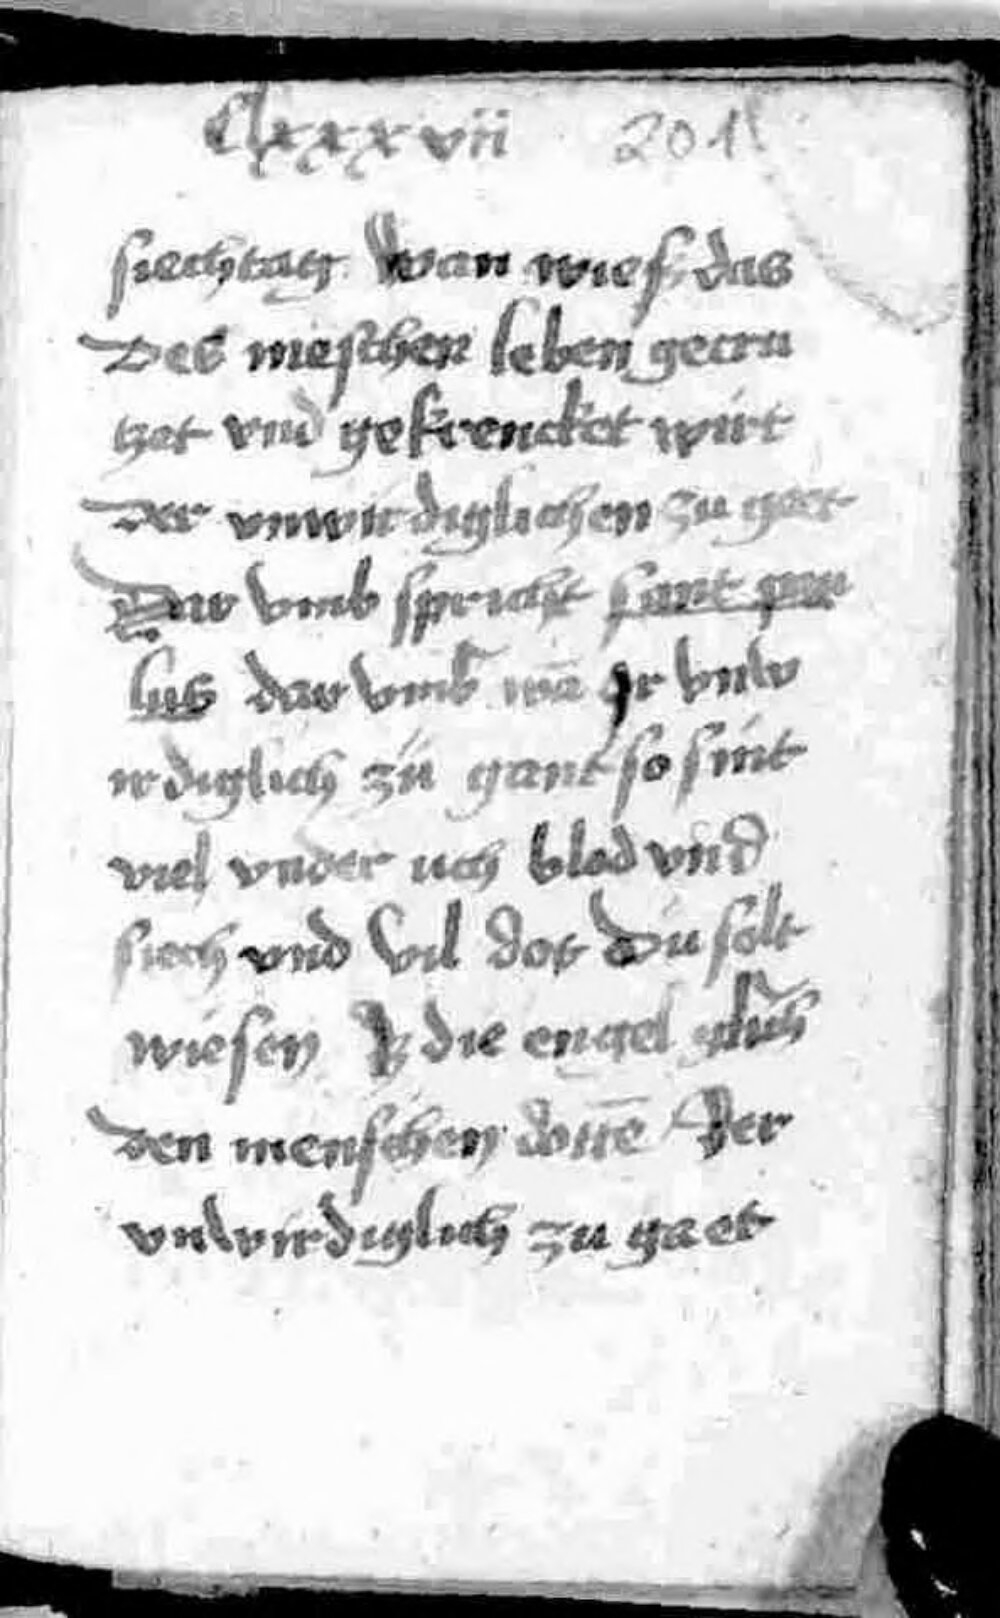 Clxxxvii 201
siechtag Wan wiess das
Des mieschen leben gecru
tzet vnd gekrencket wirt
Der vnwirdiglichen zu gaet
Dar vmb spricht sant pau
lus dar vmb wā Jr vnw
irdiglich zú gant so sint
viel vnder uch blod vnd
siech vnd vil dot Du solt
wiesen die engel glich
Den menschen dottē Der
vnwirdiglich zu gaet